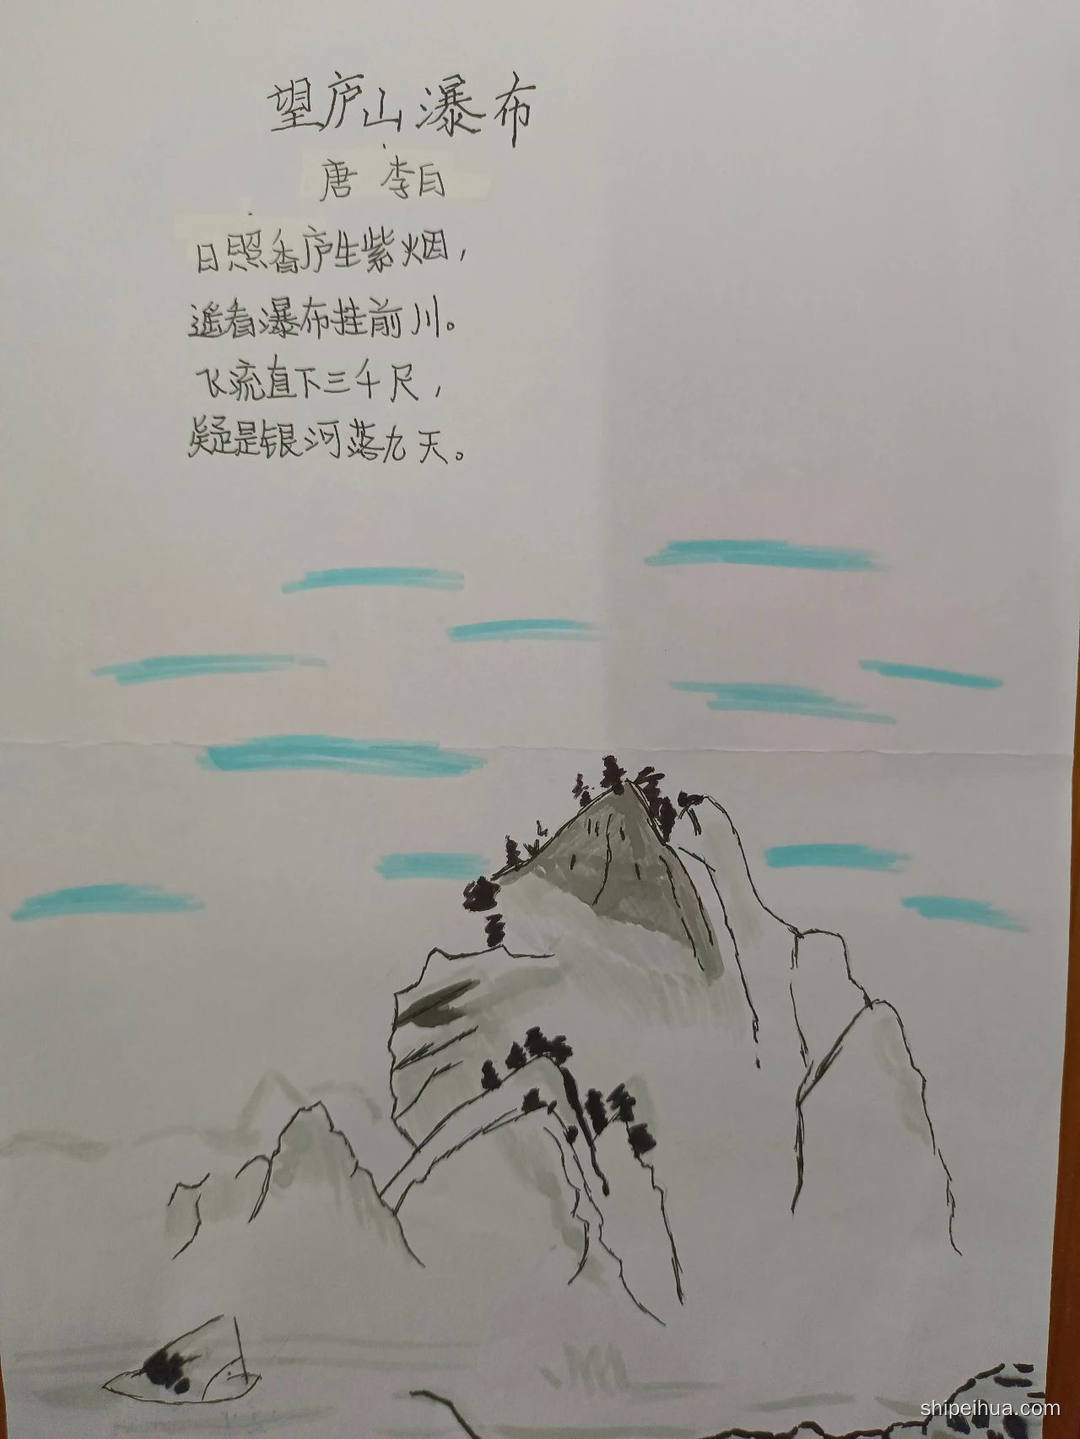 望庐山瀑布
唐 李白
日照香庐生紫烟，
遥看瀑布挂前川。
飞流直下三千尺，
疑是银河落九天。
shipeihua.com